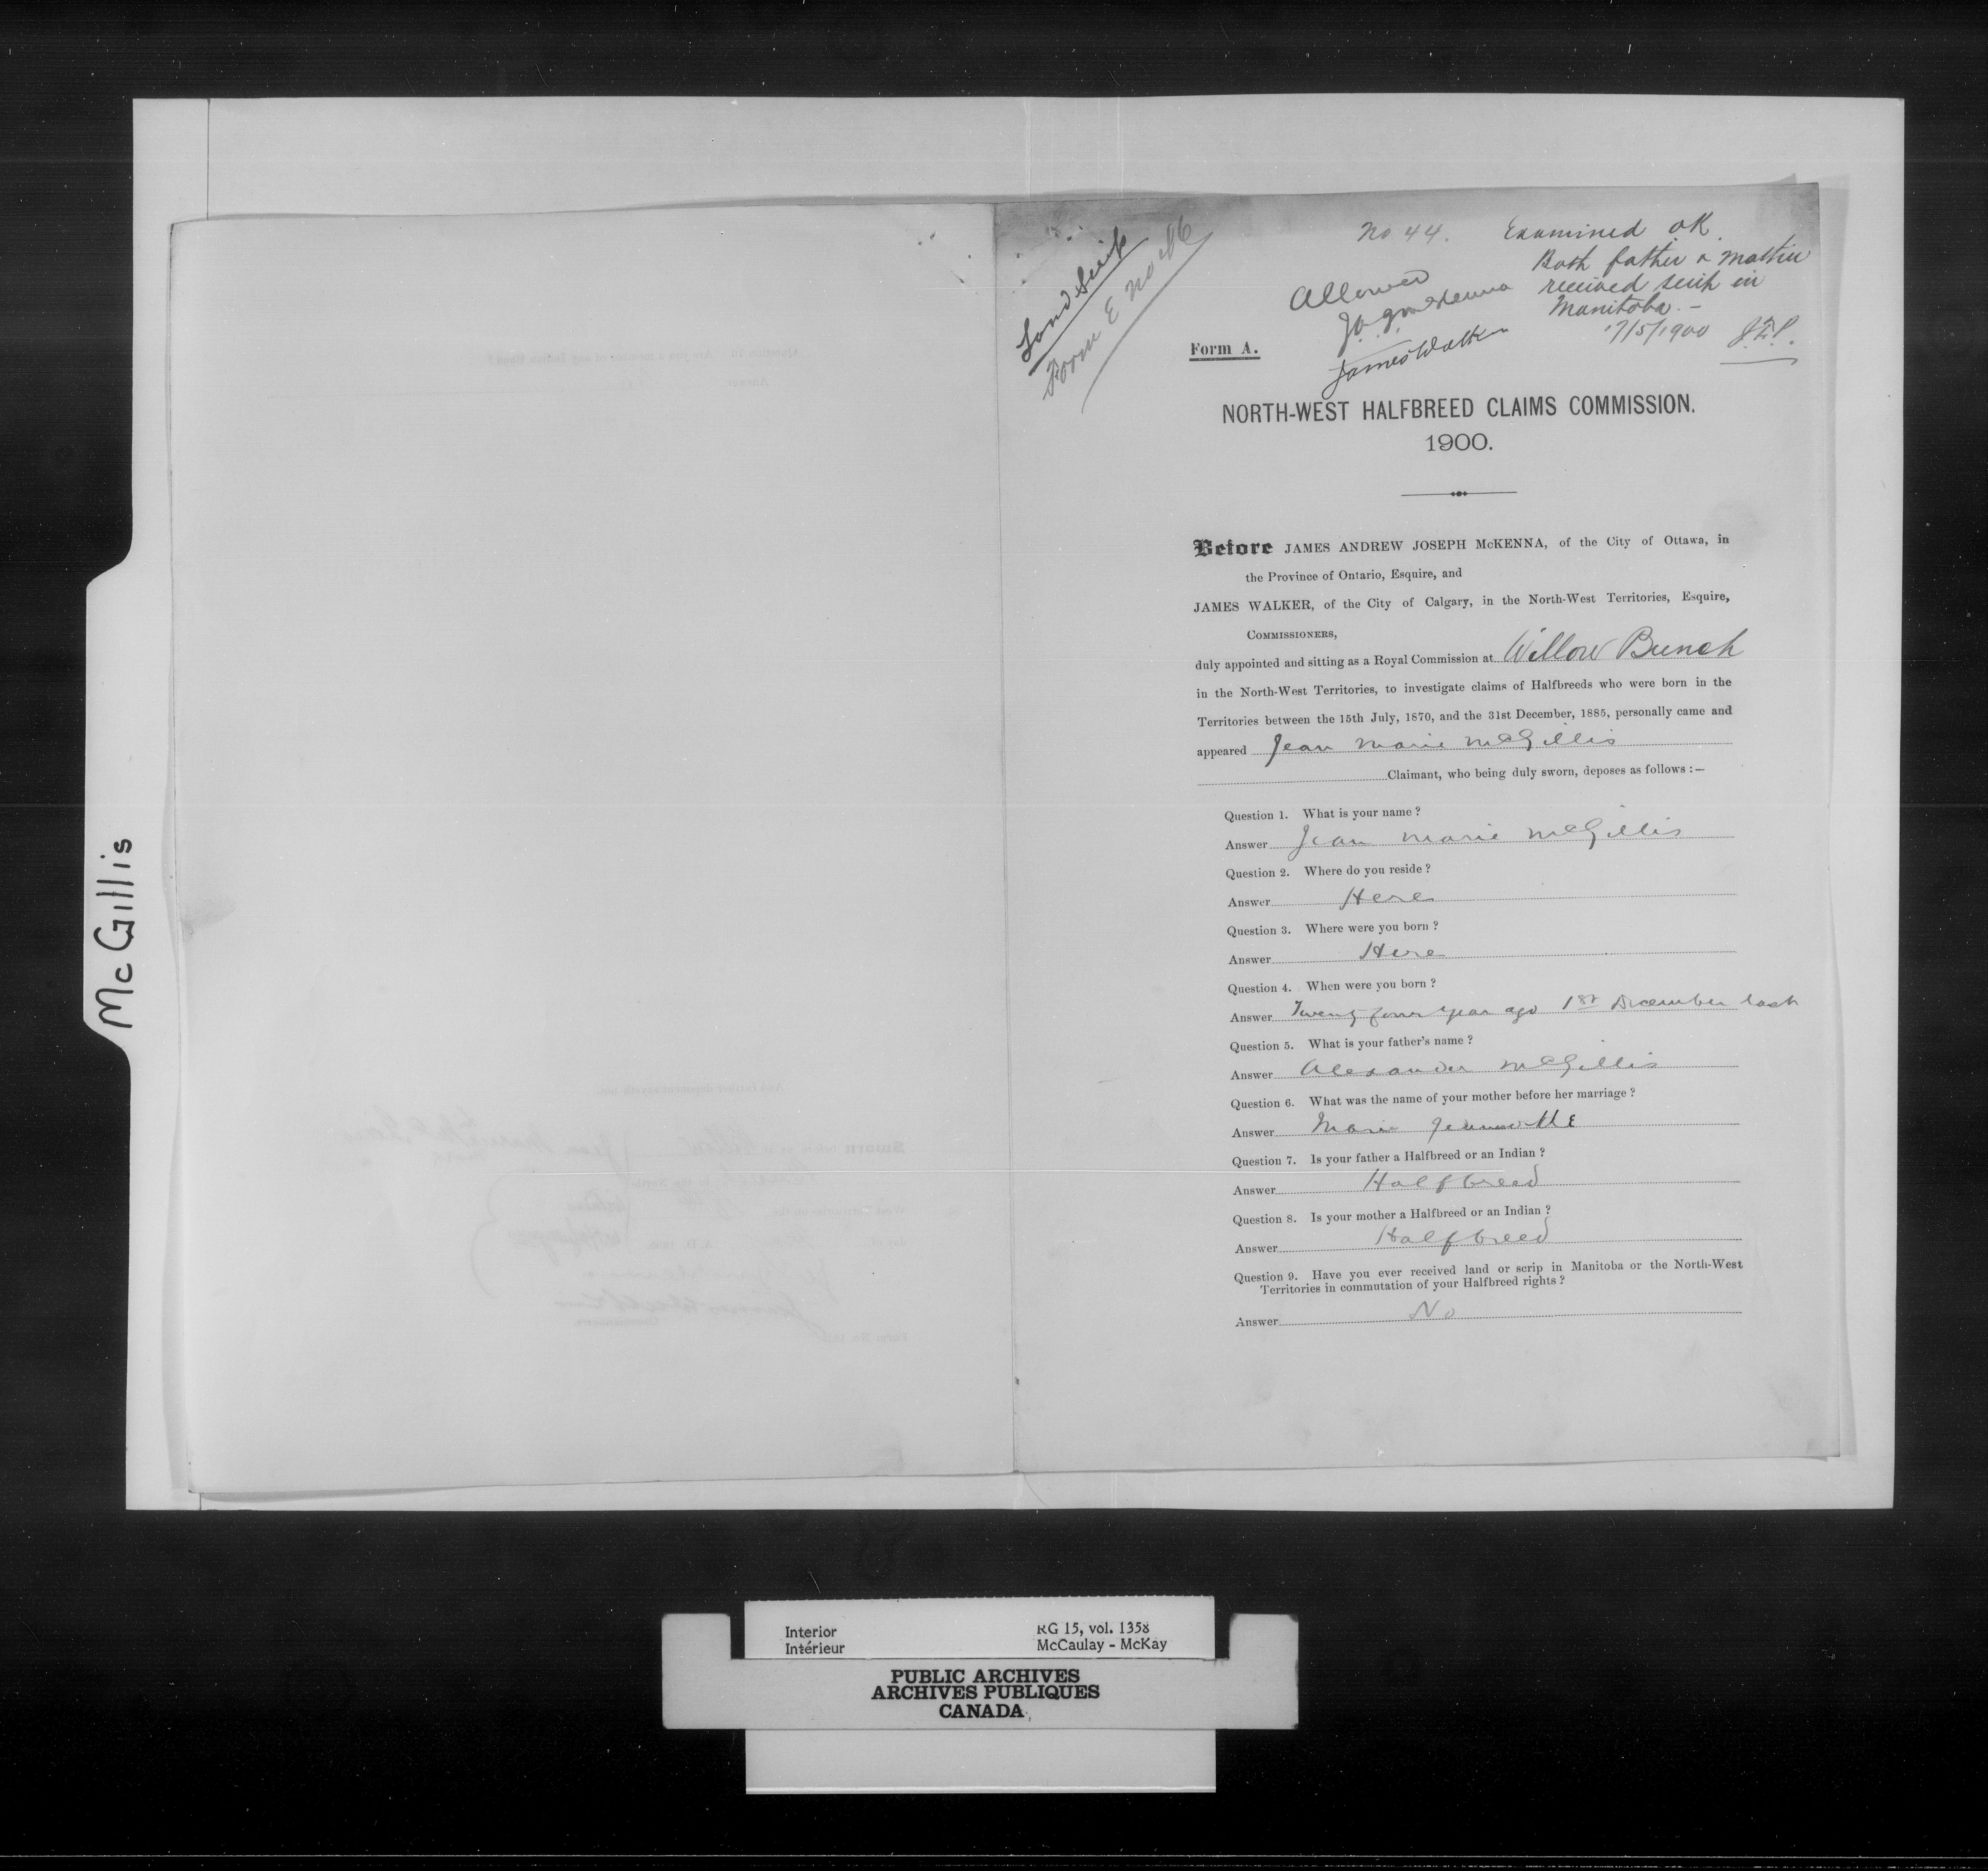 McGillis
Land Scrip
Form E No
No 44.
Examined OK
Both father & mother
received scrip in
Manitoba. -
17/5/1900 J.E.P.
Allowed
J.A.J. McKenna
James Walker
Form A.
NORTH-WEST HALFBREED CLAIMS COMMISSION.
1900.
Before JAMES ANDREW JOSEPH McKENNA, of the City of Ottawa, in
the Province of Ontario, Esquire, and
JAMES WALKER, of the City of Calgary, in the North-West Territories, Esquire,
COMMISSIONERS,
duly appointed and sitting as a Royal Commission at Willow Bunch
in the North-West Territories, to investigate claims of Halfbreeds who were born in the
Territories between the 15th July, 1870, and the 31st December, 1885, personally came and
appeared Jean Marie McGillis
Claimant, who being duly sworn, deposes as follows :—
Question 1. What is your name ?
Answer Jean Marie McGillis
Question 2. Where do you reside ?
Answer Here
Question 3. Where were you born ?
Answer Here
Question 4. When were you born ?
Answer Twenty four year ago 1st December last
Question 5. What is your father's name ?
Answer Alexander McGillis
Question 6. What was the name of your mother before her marriage ?
Answer Marie Jeannotte
Question 7. Is your father a Halfbreed or an Indian ?
Answer Halfbreed
Question 8. Is your mother a Halfbreed or an Indian ?
Answer Halfbreed
Question 9. Have you ever received land or scrip in Manitoba or the North-West
Territories in commutation of your Halfbreed rights ?
Answer No
Interior RG 15, vol. 1358
Intérieur McCaulay - McKay
PUBLIC ARCHIVES
ARCHIVES PUBLIQUES
CANADA